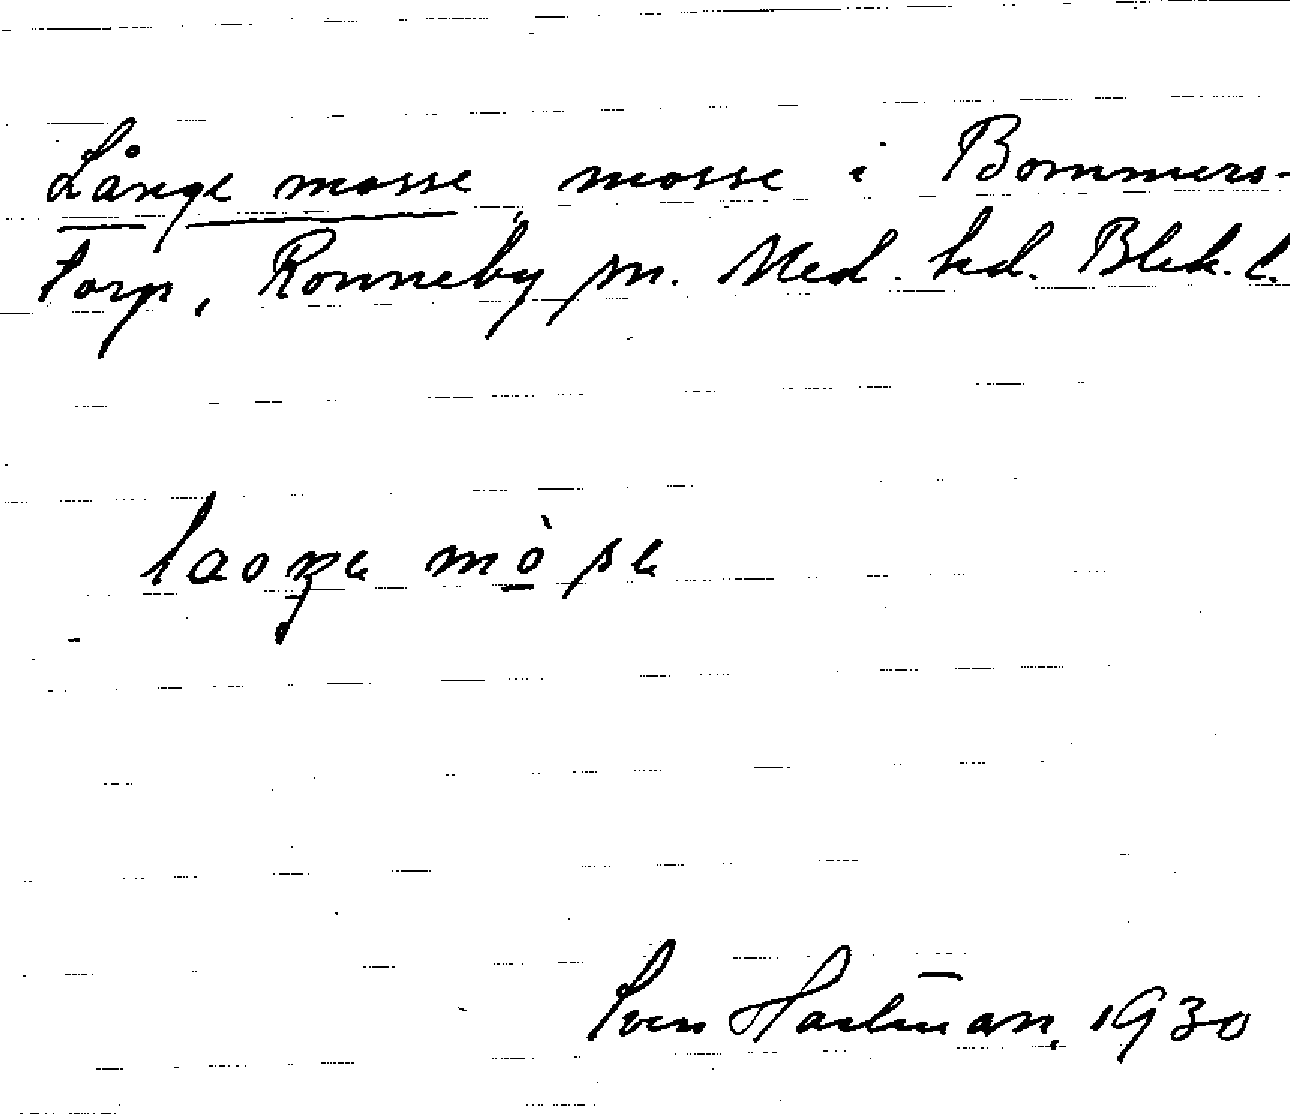 Långe mosse, mosse i Bommers-
torp, Ronneby sn. Med. hd. Blek. l.
laoŋɐ mò̱sɐ
Sven Hartman, 1930